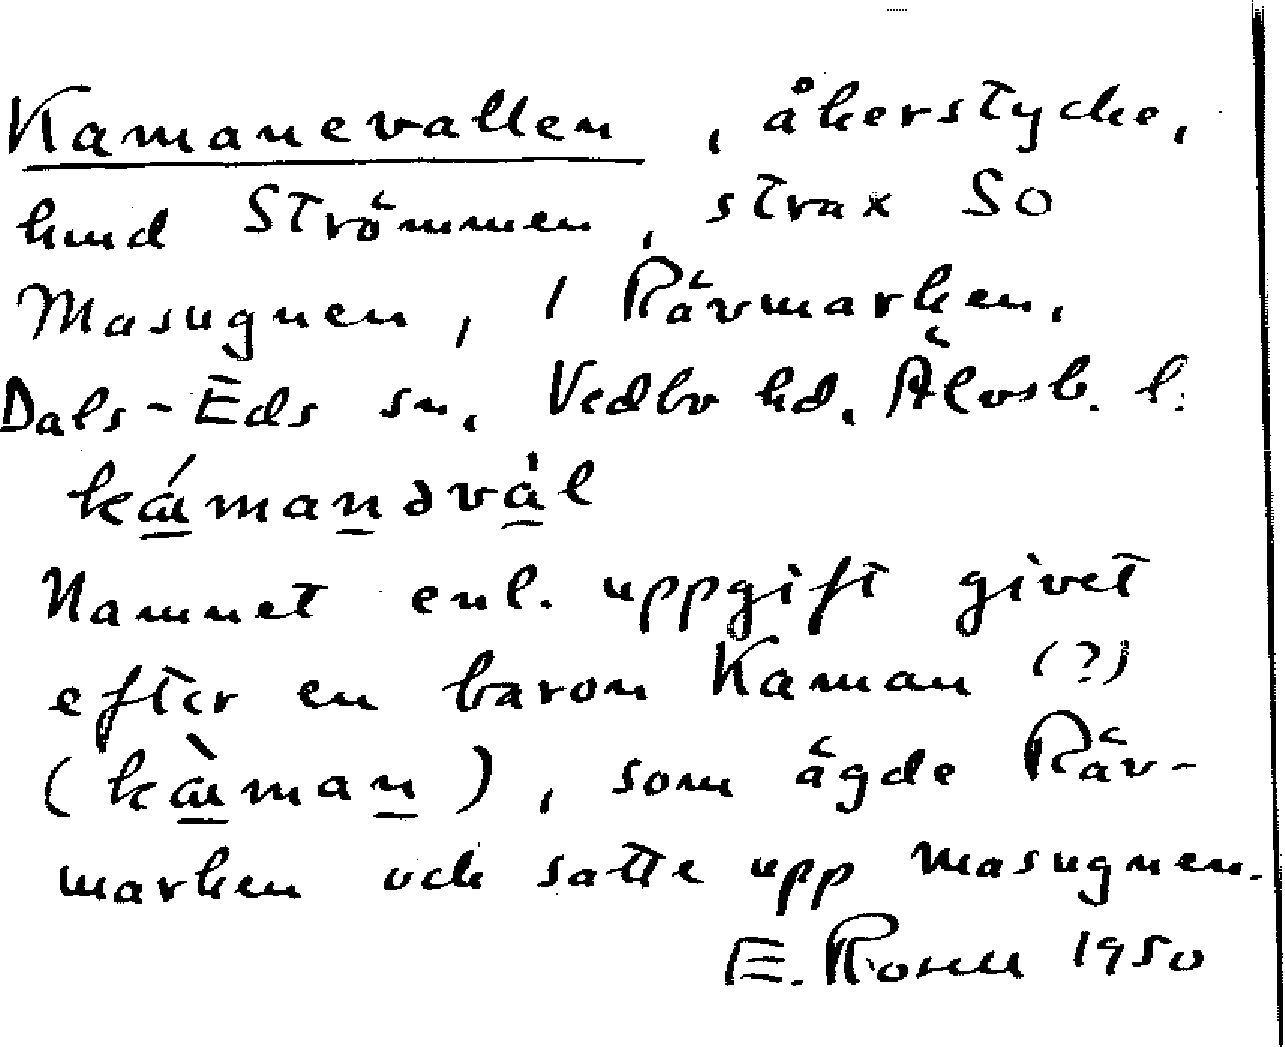 Kamanevallen, åkerstycke,
hmd Strömmen, strax SO
Masugnen, i Rävmarken,
Dals-Eds sn, Vedbo hd, Älvsb. l.
Namnet enl. uppgift givet
efter en baron Kaman (?)
(kàman), som ägde Räv-
marken och satte upp masugnen.
E. Rosell 1950